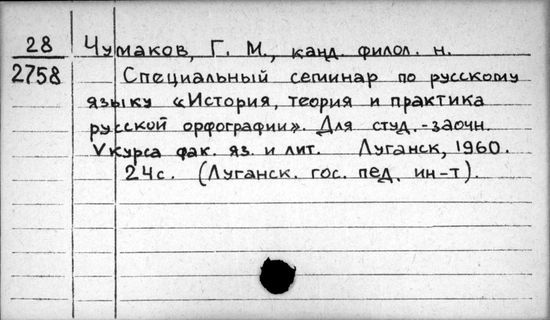 28 Чумаков, Г. М., канд. филол. н.
2758 Специальный семинар по русскому
языку «История, теория и практика
русской орфографии». Для студ.-заочн.
V курса фак. яз. и лит. Луганск, 1960.
24 с. (Луганск. гос. пед. ин-т).